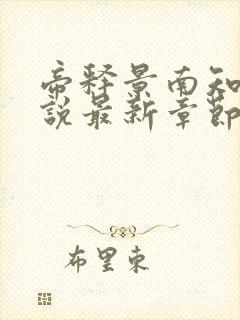 帝释景南知
說最新章節
布里東